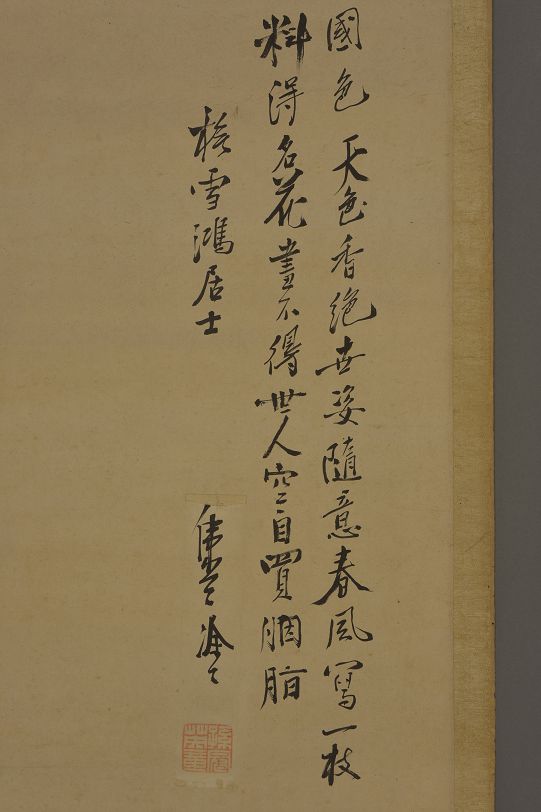 國色天色香絶世姿隨意春風寫一枝
料得名花畫不得世人空自買胭脂
雪鴻居士